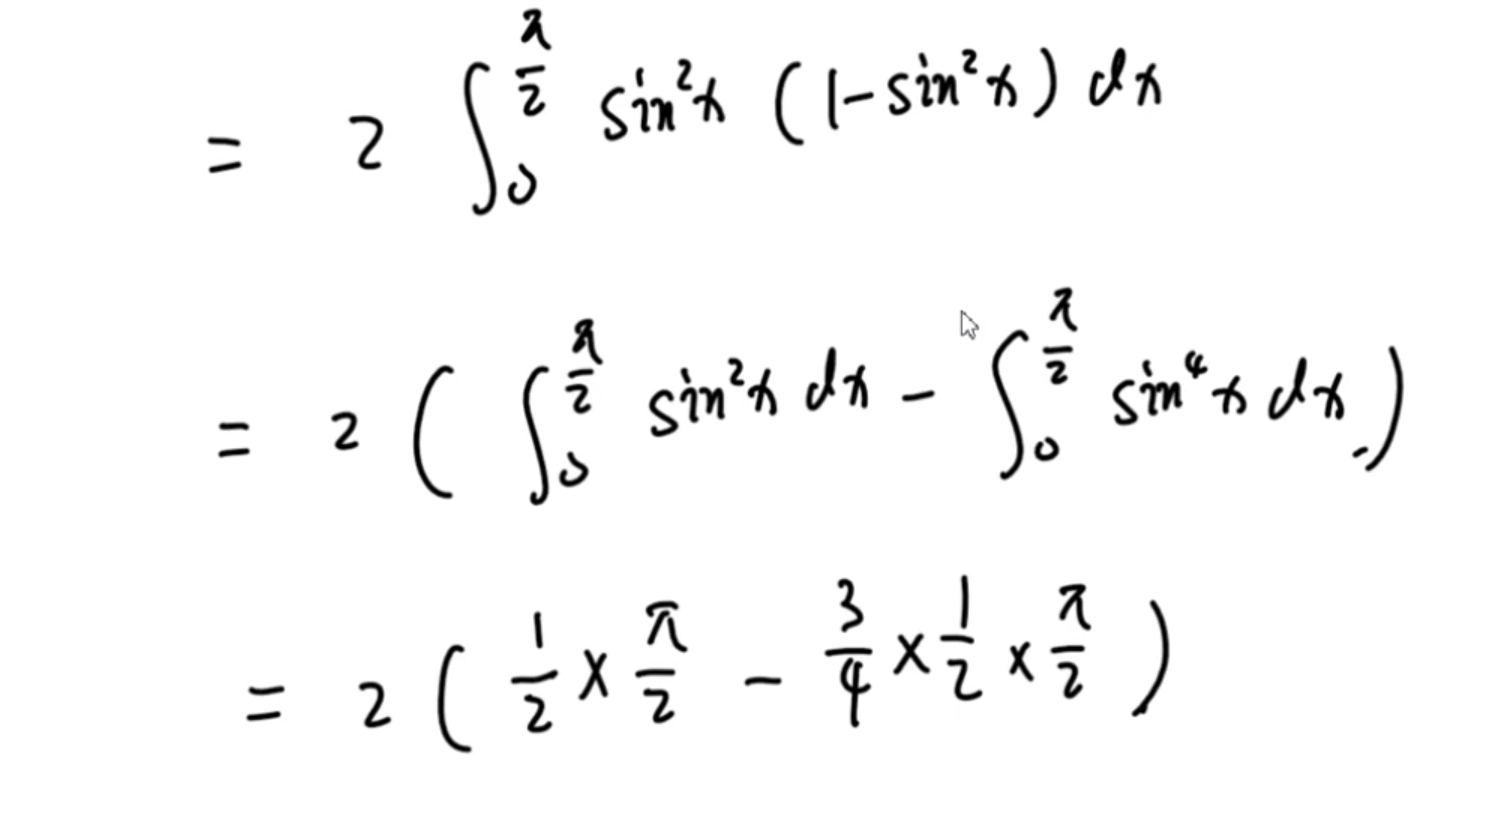 = 2 ∫₀^{π/2} sin²x (1-sin²x) dx
= 2 ( ∫₀^{π/2} sin²x dx - ∫₀^{π/2} sin⁴x dx )
= 2 ( 1/2 × π/2 - 3/4 × 1/2 × π/2 )